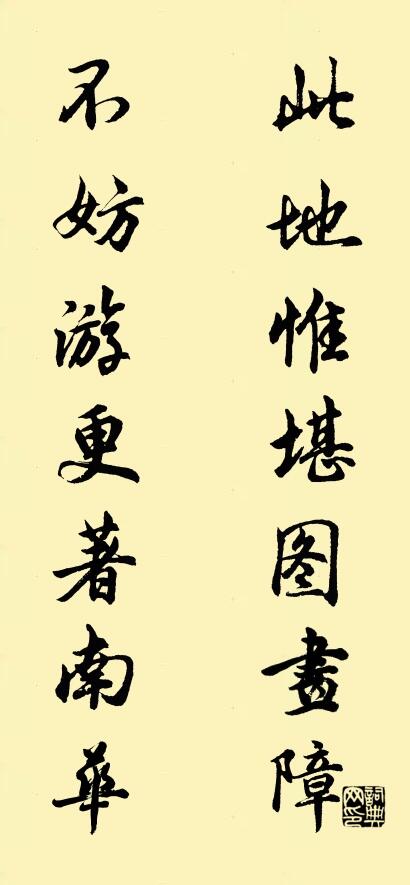 此地惟堪图畫障
不妨游更著南華
詞典网印